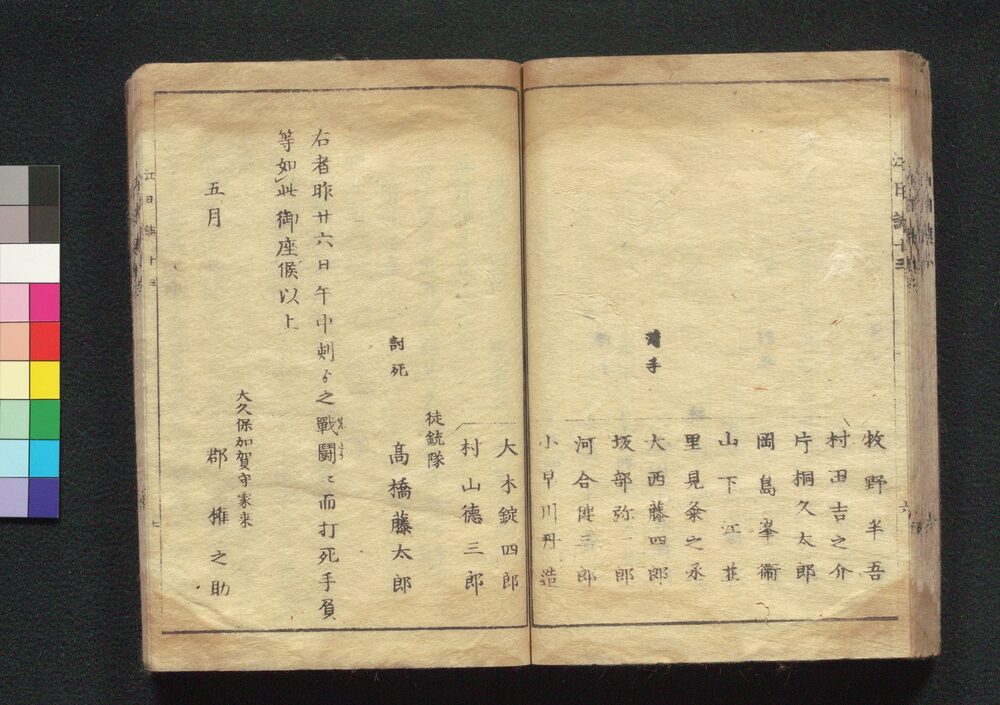 牧野半吾
村田吉之介
片桐久太郎
岡島峯衛
山下江
里見粂之丞
薄手
大西藤四郎
坂部弥一郎
河合健三郎
小早川丹造
大木錠四郎
村山徳三郎
徒銃隊
討死
髙橋藤太郎
右者昨廿六日午中刺ゟ之戰闘ニ而打死手負
等如此御座候以上
五月
大久保加賀守家来
郡権之助
江日誌十三
六
江日誌十三
七